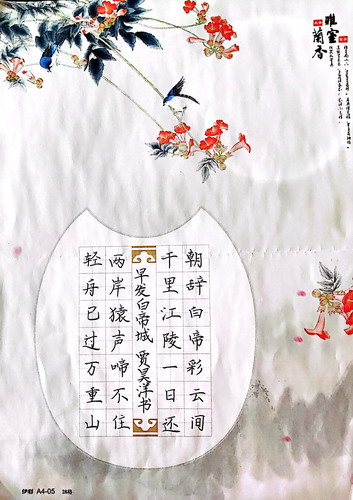 雅室
蘭香
朝辞白帝彩云间
千里江陵一日还
早发白帝城 贾昊洋书
两岸猿声啼不住
轻舟已过万重山
A4-05 28格